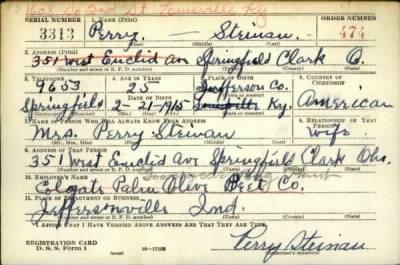 1608 So 3rd St Louisville Ky
SERIAL NUMBER 1. Name (Print) ORDER NUMBER
3313 Perry — Steinau 474
(First) (Middle) (Last)
2. Address (Print)
351 West Euclid Ave Springfield Clark O.
(Number and street or R. F. D. number) (Town) (County) (State)
3. Telephone 4. Age in Years 5. Place of Birth 6. Country of Citizenship
9653 25 Jefferson Co.
Springfield Date of Birth 2-21-1915 Ky. American
(Exchange) (Number) (Mo.) (Day) (Yr.) (Town or county) (State or country)
7. Name of Person Who Will Always Know Your Address 8. Relationship of That Person
Mrs. Perry Steinau wife
(Mr., Mrs., Miss) (First) (Middle) (Last)
9. Address of That Person
351 West Euclid Ave Springfield Clark Ohio
(Number and street or R. F. D. number) (Town) (County) (State)
10. Employer's Name
Colgate Palm Olive Peet Co.
11. Place of Employment or Business
Jeffersonville Ind.
(Number and street or R. F. D. number) (Town) (County) (State)
I Affirm That I Have Verified Above Answers and That They Are True.
REGISTRATION CARD
D. S. S. Form 1 16—17105 Perry Steinau
(Registrant's signature)